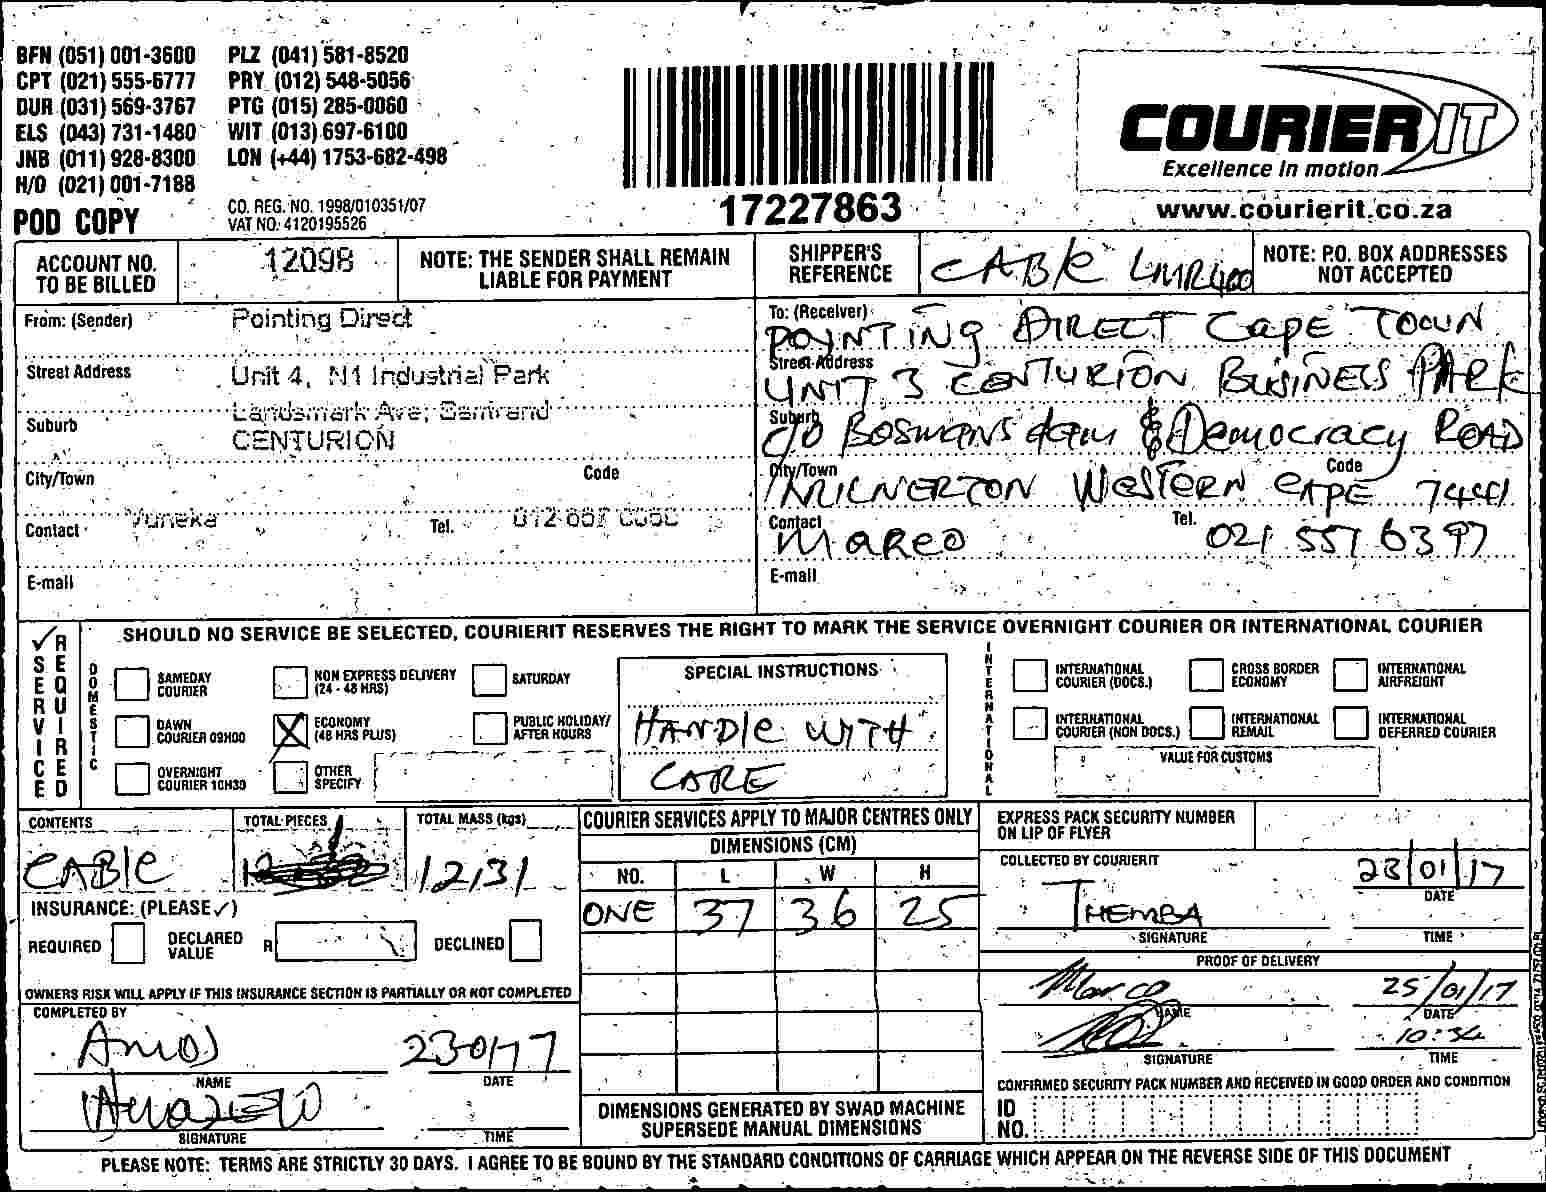 BFN (051) 001-3600 PLZ (041) 581-8520
CPT (021) 555-6777 PRY (012) 548-5056
DUR (031) 569-3767 PTG (015) 285-0060
ELS (043) 731-1480 WIT (013) 697-6100
JNB (011) 928-8300 LON (+44) 1753-682-498
H/O (021) 001-7188
POD COPY
CO. REG. NO. 1998/010351/07
VAT NO: 4120195526
17227863
COURIER IT
Excellence in motion
www.courierit.co.za
ACCOUNT NO.
TO BE BILLED
12098
NOTE: THE SENDER SHALL REMAIN
LIABLE FOR PAYMENT
SHIPPER'S
REFERENCE
CABLE LMR400
NOTE: P.O. BOX ADDRESSES
NOT ACCEPTED
From: (Sender) Pointing Direct
Street Address Unit 4, N1 Industrial Park
Suburb Landsmark Ave,
CENTURION
City/Town Code
Contact Vuneka Tel. 012 657
E-mail
To: (Receiver)
POYNTING DIRECT CAPE TOWN
Street Address
UNIT 3 CENTURION BUSINESS PARK
Suburb
C/O BOSMANS dam & Democracy ROAD
City/Town Code
MILNERTON WESTERN CAPE 7441
Contact Tel.
MARCO 021 557 6397
E-mail
✓ SERVICE REQUIRED
SHOULD NO SERVICE BE SELECTED, COURIERIT RESERVES THE RIGHT TO MARK THE SERVICE OVERNIGHT COURIER OR INTERNATIONAL COURIER
DOMESTIC
SAMEDAY
COURIER
NON EXPRESS DELIVERY
(24 - 48 HRS)
SATURDAY
DAWN
COURIER 09H00
X ECONOMY
(48 HRS PLUS)
PUBLIC HOLIDAY/
AFTER HOURS
OVERNIGHT
COURIER 10H30
OTHER
SPECIFY
SPECIAL INSTRUCTIONS
HANDLE WITH
CARE
INTERNATIONAL
INTERNATIONAL
COURIER (DOCS.)
CROSS BORDER
ECONOMY
INTERNATIONAL
AIRFREIGHT
INTERNATIONAL
COURIER (NON DOCS.)
INTERNATIONAL
REMAIL
INTERNATIONAL
DEFERRED COURIER
VALUE FOR CUSTOMS
CONTENTS
CABLE
TOTAL PIECES
1
TOTAL MASS (kgs)
12,31
INSURANCE: (PLEASE ✓)
REQUIRED
DECLARED
VALUE
R
DECLINED
OWNERS RISK WILL APPLY IF THIS INSURANCE SECTION IS PARTIALLY OR NOT COMPLETED
COMPLETED BY
Amos
NAME DATE
SIGNATURE TIME
COURIER SERVICES APPLY TO MAJOR CENTRES ONLY
DIMENSIONS (CM)
NO. L W H
ONE 37 36 25
DIMENSIONS GENERATED BY SWAD MACHINE
SUPERSEDE MANUAL DIMENSIONS
EXPRESS PACK SECURITY NUMBER
ON LIP OF FLYER
COLLECTED BY COURIERIT
THEMBA 23/01/17
DATE
SIGNATURE TIME
PROOF OF DELIVERY
Marco 25/01/17
NAME DATE
10:34
SIGNATURE TIME
CONFIRMED SECURITY PACK NUMBER AND RECEIVED IN GOOD ORDER AND CONDITION
ID
NO.
PLEASE NOTE: TERMS ARE STRICTLY 30 DAYS. I AGREE TO BE BOUND BY THE STANDARD CONDITIONS OF CARRIAGE WHICH APPEAR ON THE REVERSE SIDE OF THIS DOCUMENT